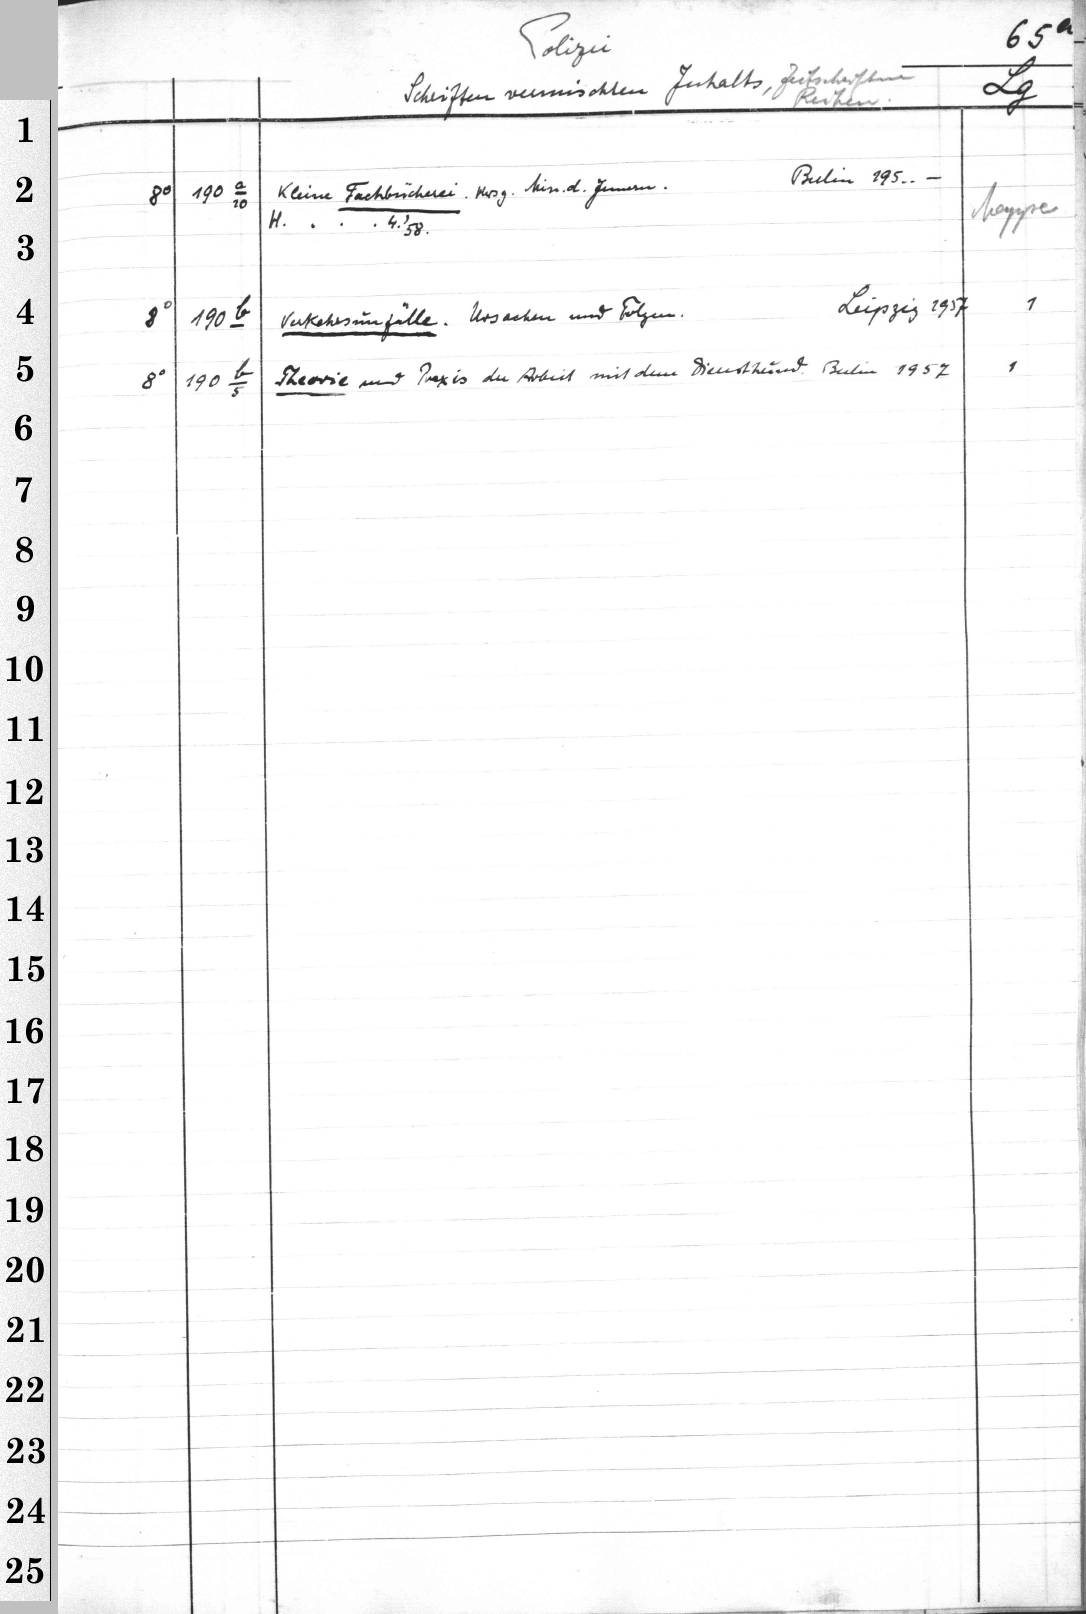 Polizei
65a
Schriften vermischten Inhalts, Zeitschriften
Reihen.
Lg
1
2 8° 190 a/10 Kleine Fachbücherei. Hrsg. Min. d. Innern. Berlin 195.. – Mappe
H. . . . 4.'58.
3
4 8° 190 b Verkehrsunfälle. Ursachen und Folgen. Leipzig 1957 1
5 8° 190 b/5 Theorie und Praxis der Arbeit mit dem Diensthund. Berlin 1957 1
6
7
8
9
10
11
12
13
14
15
16
17
18
19
20
21
22
23
24
25